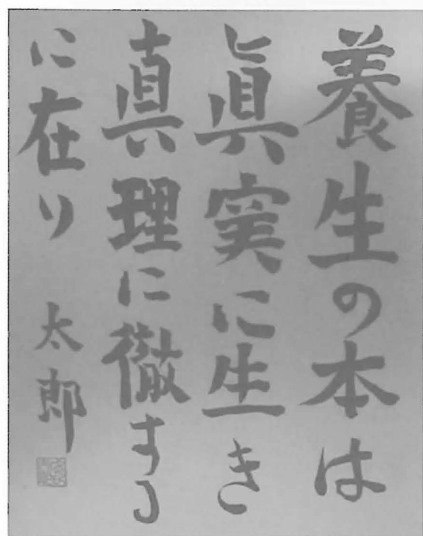 養生の本は
眞実に生き
真理に徹する
に在り 太郎